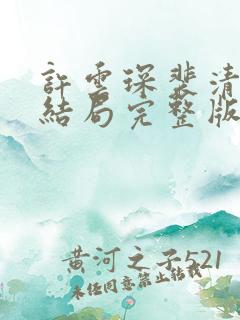 許雲琛裴清
結局完整版
黃河之子521
未任同意禁止轉載